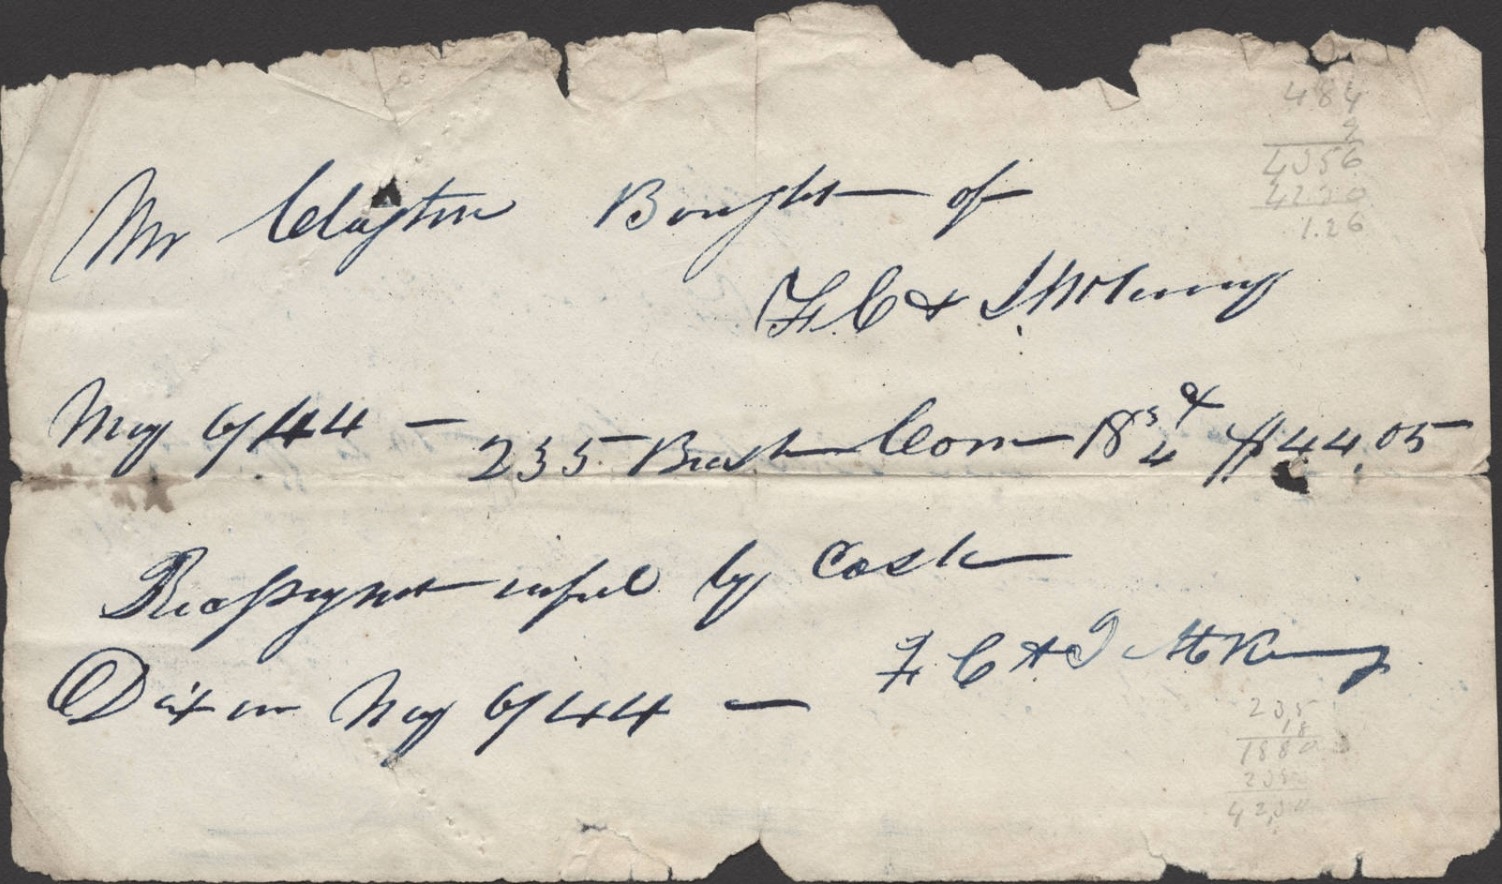 Mr Clayton Bought of
F. C & J.
May 6/44 — 235 Bush Corn 18 3/4 $44.05
Recd payment in full by Cash
F C & J
Dixon May 6/44 —
484
2
4356
4230
1.26
235
18
1880
235
4230